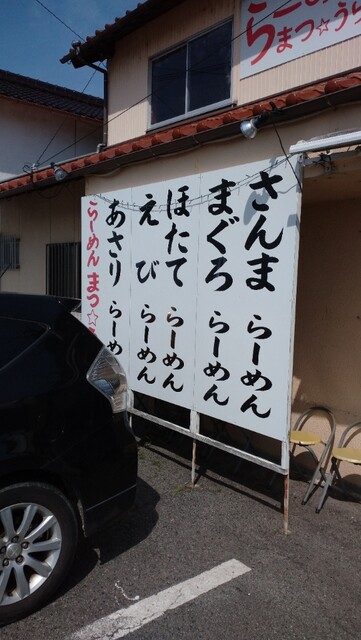 らーめん
まつ☆
さんま らーめん
まぐろ らーめん
ほたて らーめん
えび らーめん
あさり らーめ
らーめん まつ☆